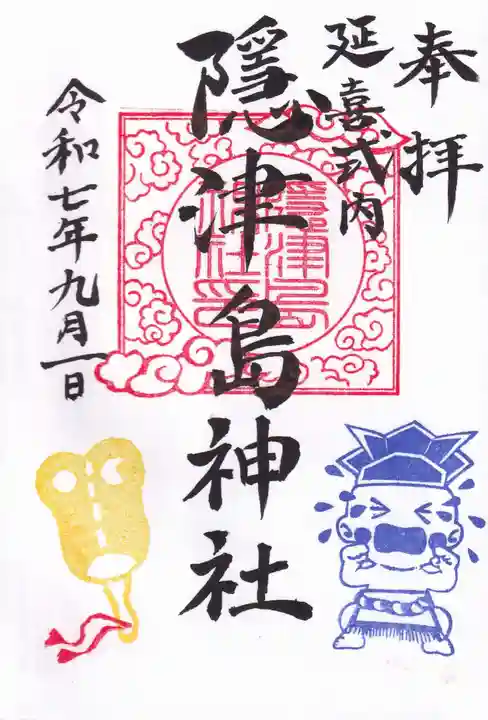 奉拝
延喜式内
隠津島神社
隠津島
神社印
令和七年九月一日